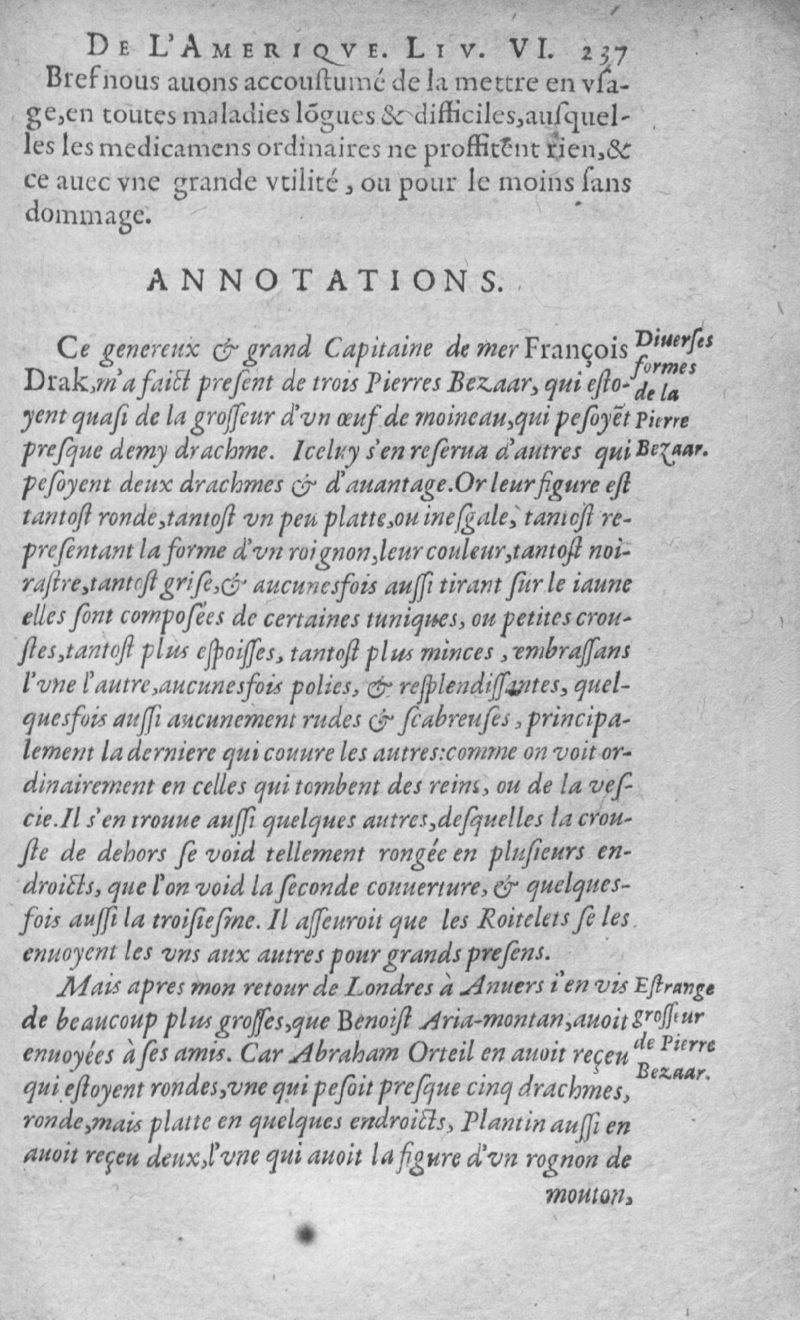 DE L'AMERIQVE. LIV. VI. 237
Bref nous auons accouſtumé de la mettre en vſa-
ge,en toutes maladies lõgues & difficiles,auſquel-
les les medicamens ordinaires ne proffitent rien,&
ce auec vne grande vtilité, ou pour le moins ſans
dommage.
ANNOTATIONS.
Ce genereux & grand Capitaine de mer François
Drak,m'a faict preſent de trois Pierres Bezaar, qui eſto-
yent quaſi de la groſſeur d'vn œuf de moineau,qui peſoyẽt
preſque demy drachme. Iceluy s'en reſerua d'autres qui
peſoyent deux drachmes & d'auantage.Or leur figure eſt
tantoſt ronde,tantoſt vn peu platte,ou ineſgale, tantoſt re-
preſentant la forme d'vn roignon,leur couleur,tantoſt noi-
raſtre,tantoſt griſe,& aucunesfois auſſi tirant ſur le iaune
elles ſont compoſées de certaines tuniques, ou petites crou-
ſtes,tantoſt plus eſpoiſſes, tantoſt plus minces , embraſſans
l'vne l'autre,aucunesfois polies, & reſplendiſſantes, quel-
quesfois auſſi aucunement rudes & ſcabreuſes, principa-
lement la derniere qui couure les autres:comme on voit or-
dinairement en celles qui tombent des reins, ou de la veſ-
cie.Il s'en trouue auſſi quelques autres,deſquelles la crou-
ſte de dehors ſe void tellement rongée en pluſieurs en-
droicts, que l'on void la ſeconde couuerture, & quelques-
fois auſſi la troiſieſme. Il aſſeuroit que les Roitelets ſe les
enuoyent les vns aux autres pour grands preſens.
Diuerſes
formes
de la
Pierre
Bezaar.
Mais apres mon retour de Londres à Anuers i'en vis
de beaucoup plus groſſes,que Benoiſt Aria-montan,auoit
enuoyées à ſes amis. Car Abraham Orteil en auoit reçeu
qui eſtoyent rondes,vne qui peſoit preſque cinq drachmes,
ronde,mais platte en quelques endroicts, Plantin auſſi en
auoit reçeu deux,l'vne qui auoit la figure d'vn rognon de
mouton,
Eſtrange
groſſeur
de Pierre
Bezaar.